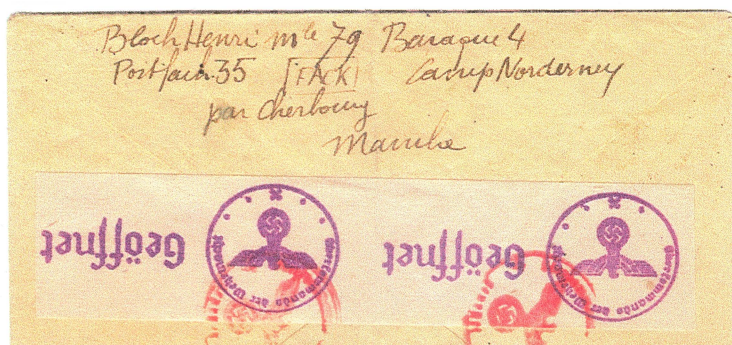 Bloch Henri mle 79 Baraque 4
Postfach 35 [FACK] Camp Norderney
par Cherbourg
Manche
Geöffnet Oberkommando der Wehrmacht Geöffnet Oberkommando der Wehrmacht